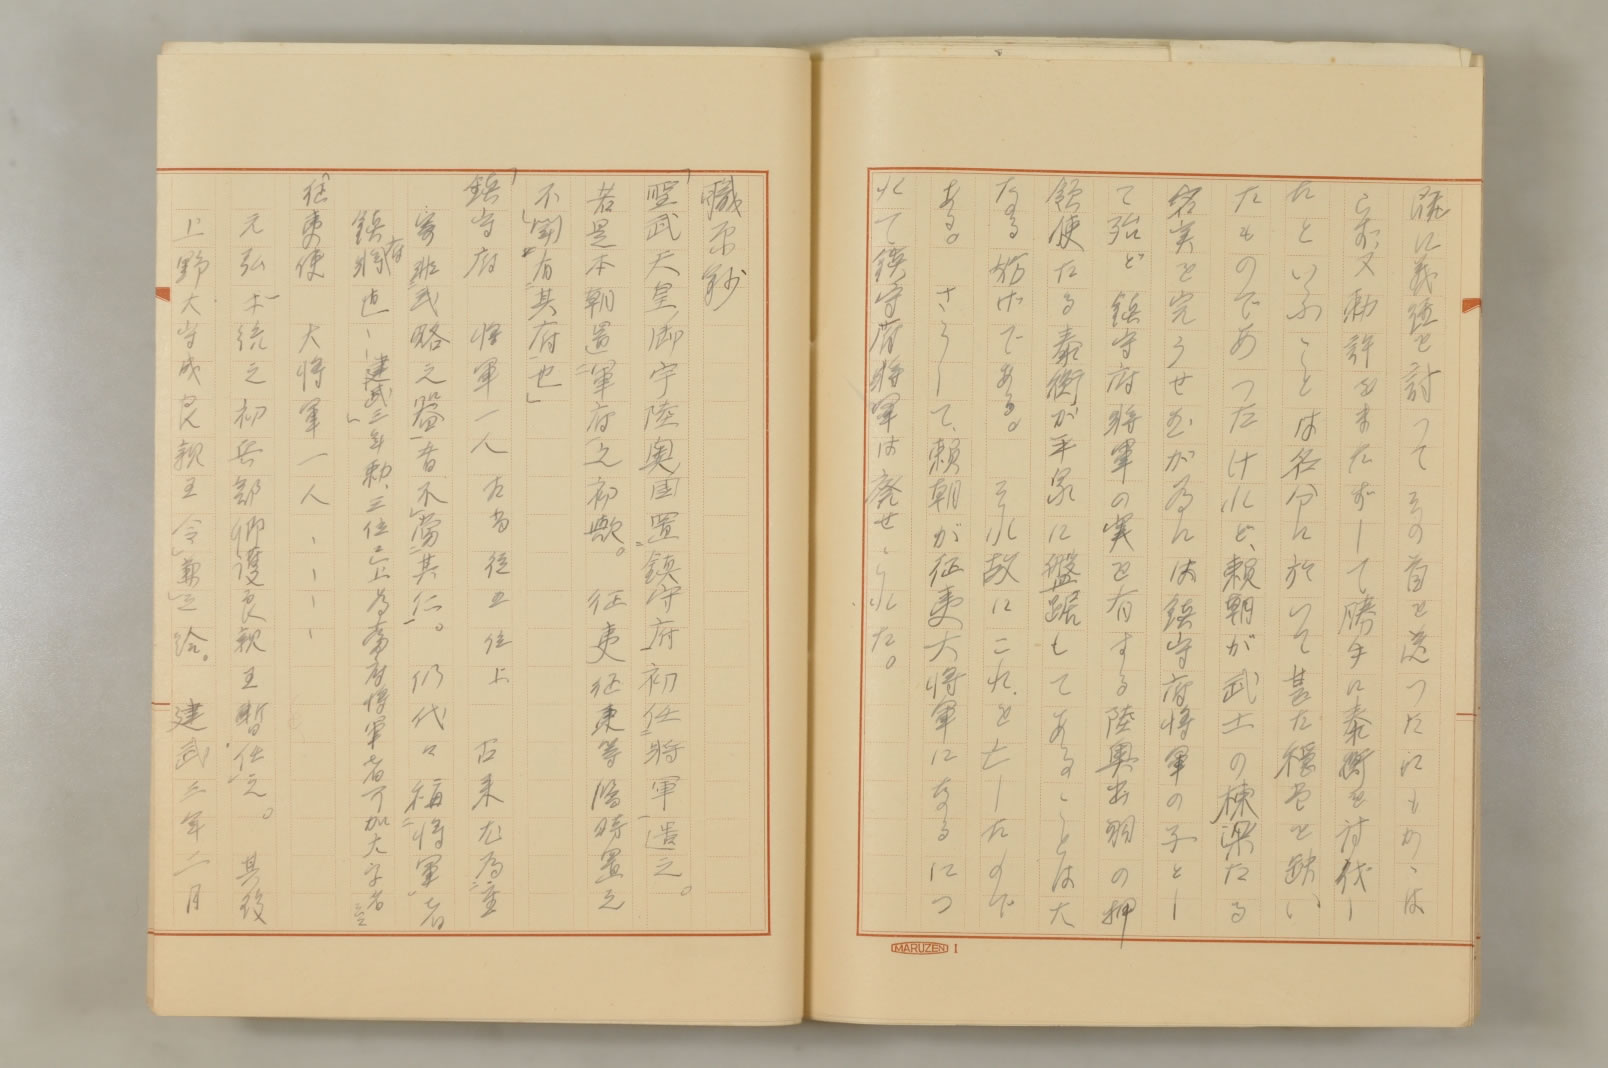 既に義経を討つてその首を送つたにもかゝは
らず、又勅許をまたずして勝手に泰衡を討伐し
たといふことは名分に於いて甚だ穏当を缺い
たものであつたけれど、頼朝が武士の棟梁たる
名実を完うせむが為には鎮守府将軍の子とし
て殆ど鎮守府将軍の実を有する陸奥出羽の押
領使たる泰衡が平泉に盤踞してあることは大
なる妨げである。それ故にこれを亡したので
ある。さうして、頼朝が征夷大将軍になるにつ
れて鎮守府将軍は廃せられた。
MARUZEN I
職原鈔
「聖武天皇御宇陸奥国置鎮守府初任将軍造之。
若是本朝置軍府之初歟。征夷征東等臨時置之
不聞有其府也」
「鎮守府 将軍一人 古者従五位上 古来尤為重
寄非武略之器者不当其仁。仍代々補将軍者
鎮府将 建武三年勅、三位已上為当府将軍者可加大字者
征夷使 大将軍一人
元弘一統之初兵部卿護良親王暫任之。其後
上野大守成良親王令兼之給。建武三年二月